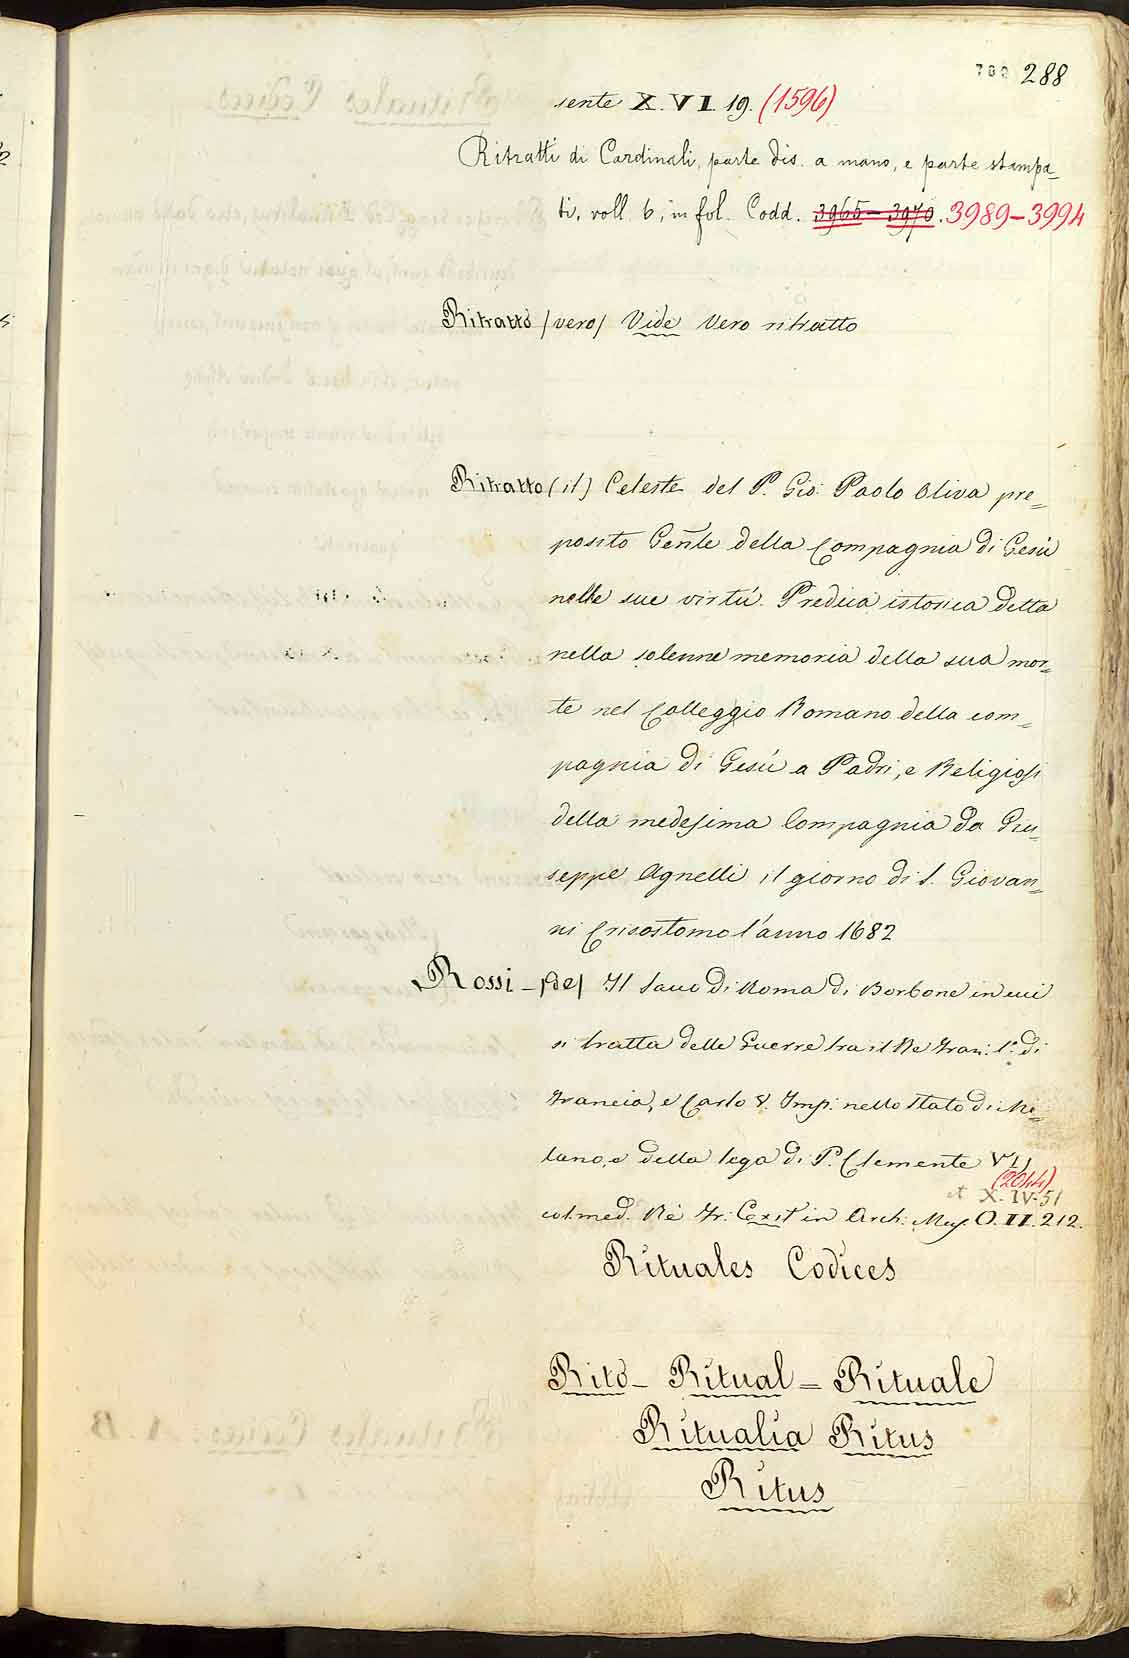 288
sente X. VI. 19. (1596)
Ritratti di Cardinali, parte dis. a mano, e parte stampa-
ti, voll. 6, in fol. Codd. 3965-3970. 3989-3994
Ritratto /vero/ Vide Vero ritratto
Ritratto (il) Celeste del P. Gio: Paolo Oliva pre=
posito Gen̄le della Compagnia di Gesù
nelle sue virtù. Predica istorica detta
nella solenne memoria della sua mor=
te nel Collegio Romano della com=
pagnia di Gesù a Padri, e Religiosi
della medesima Compagnia da Giu=
seppe Agnelli il giorno di S. Giovan=
ni Crisostomo l'anno 1682
Rossi - /de/ Il Sacco di Roma di Borbone in cui
si tratta delle Guerre tra il Re Fran: 1.° di
Francia, e Carlo V. Imp: nello Stato di Mi=
lano, e della lega di P. Clemente VII
(2044)
et X. IV. 51
col med. Rè Fr: Exit in Arch: O. II. 212.
Rituales Codices
Rito - Ritual = Rituale
Ritualia Ritus
Ritus